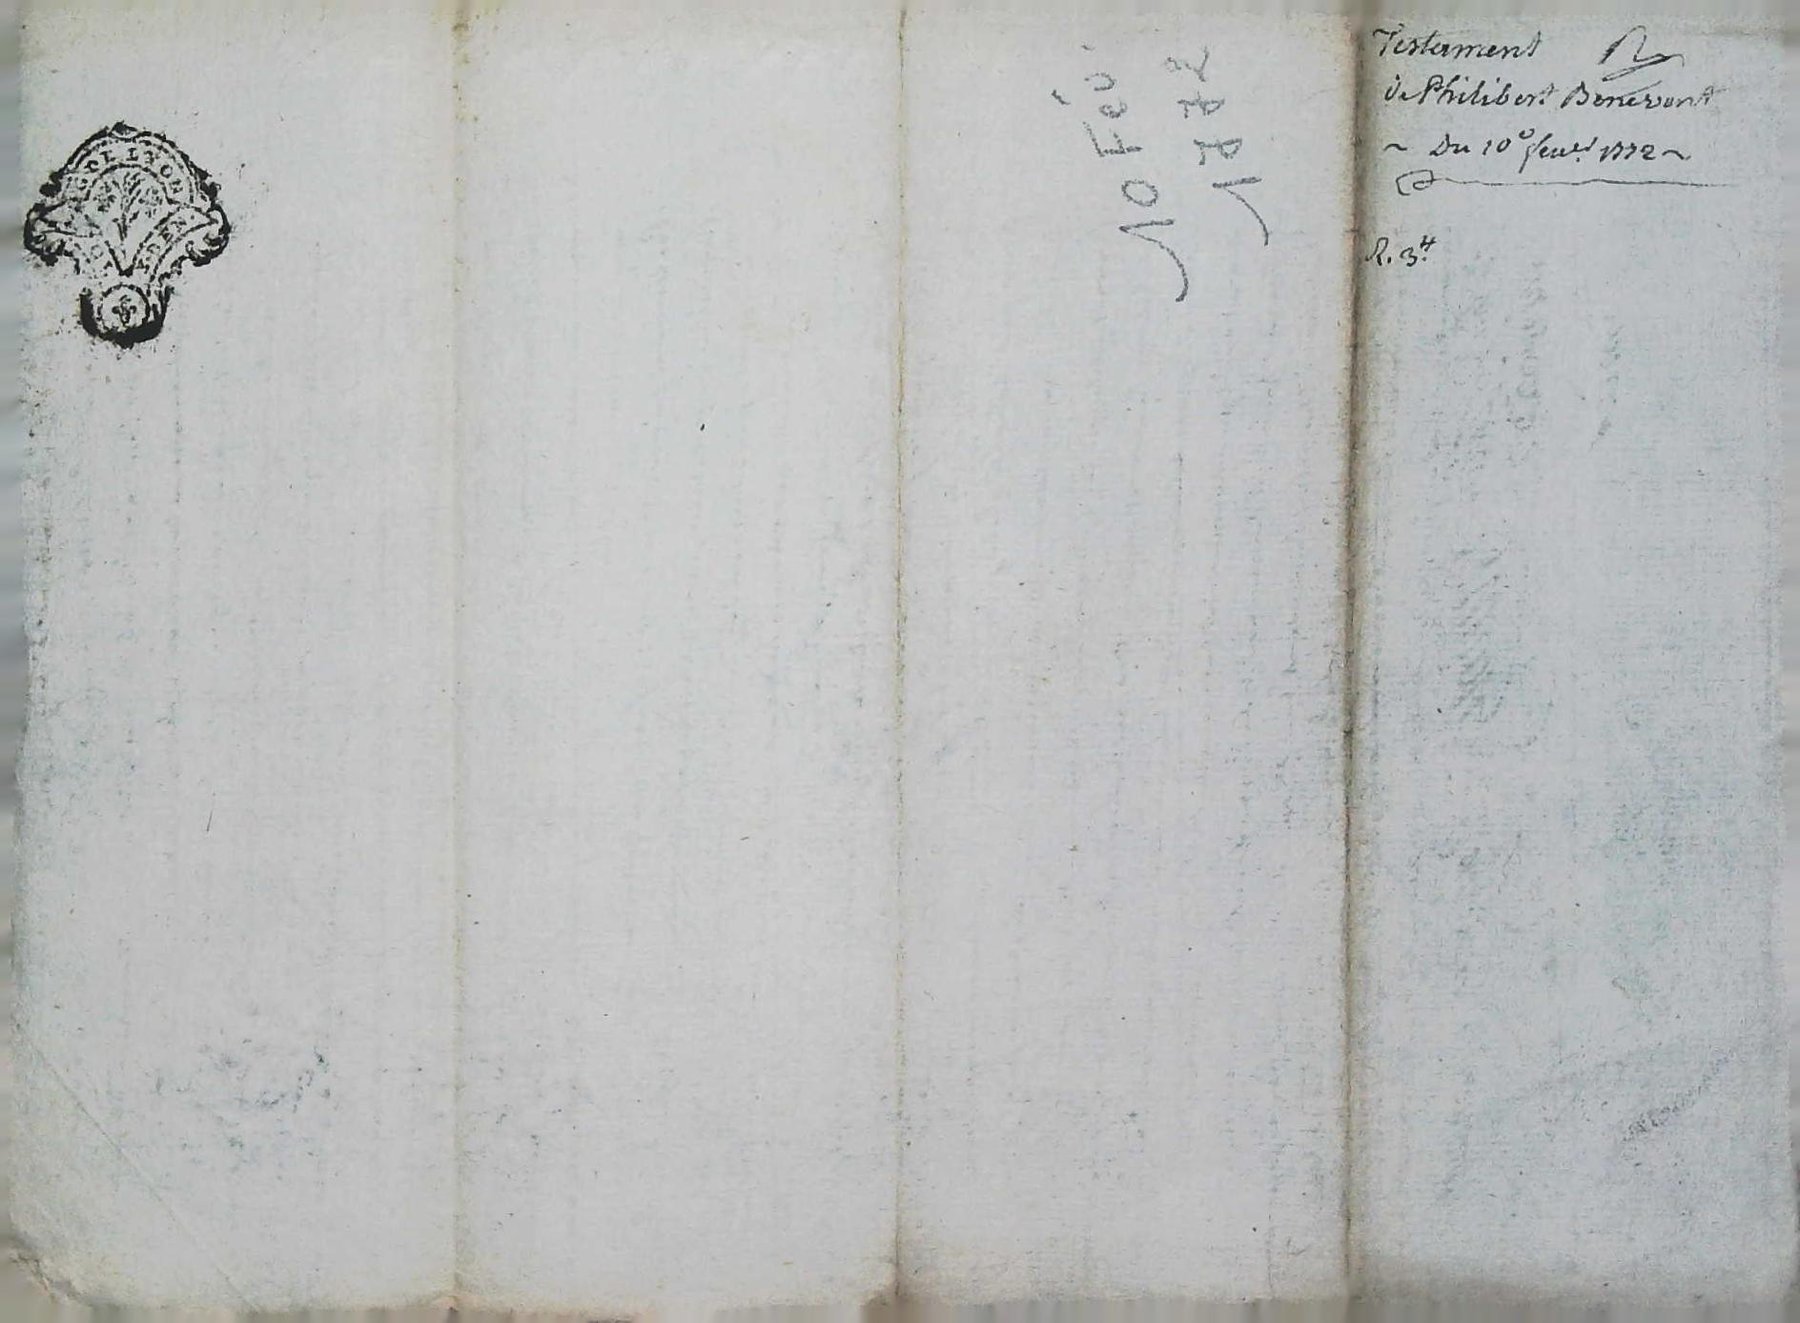 G. DE LYON
10 Fév.
1772
Testament
de Philibert Benevent
~ Du 10e feu.er 1772 ~
R. 3.#